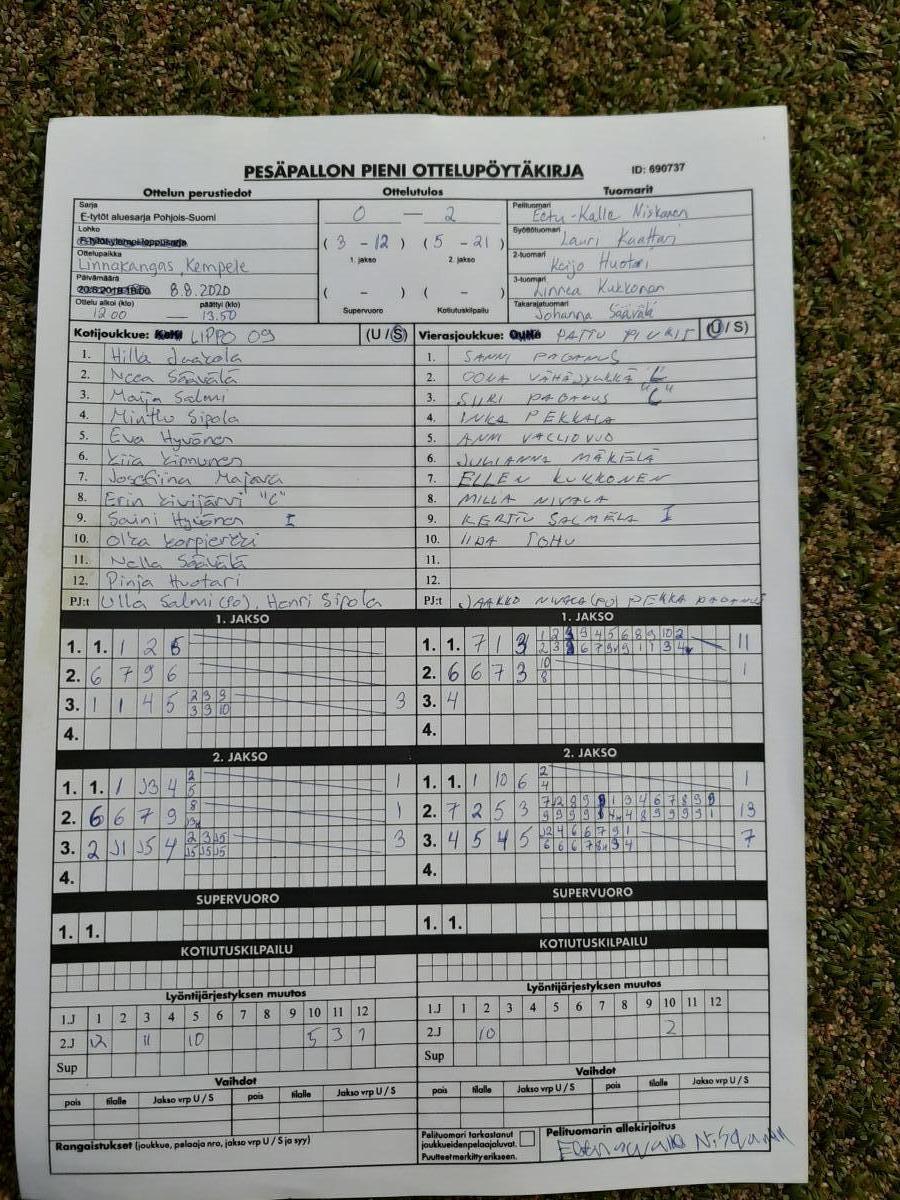 PESÄPALLON PIENI OTTELUPÖYTÄKIRJA
ID: 690737
Ottelun perustiedot
Sarja
E-tytöt aluesarja Pohjois-Suomi
Lohko
Ottelupaikka
Linnakangas, Kempele
Päivämäärä
8.8.2020
Ottelu alkoi (klo) päättyi (klo)
12.00 — 13.50
Ottelutulos
0 — 2
( 3 - 12 ) ( 5 - 21 )
1. jakso 2. jakso
( - ) ( - )
Supervuoro Kotiutuskilpailu
Tuomarit
Pelituomari
Eetu-Kalle Niskanen
Syöttötuomari
Lauri Kaattari
2-tuomari
Keijo Huotari
3-tuomari
Linnea Kukkonen
Takarajatuomari
Johanna Säävälä
Kotijoukkue: LIPPO 09 (U / S)
1. Hilla Jaakola
2. Neea Säävälä
3. Maija Salmi
4. Minttu Sipola
5. Eva Hyvönen
6. Kiia Kinnunen
7. Josefiina Majava
8. Erin Kivijärvi "C"
9. Saini Hyvönen I
10. Olga
11. Nella Säävälä
12. Pinja Huotari
PJ:t Ulla Salmi (PJ), Henri Sipola
Vierasjoukkue: PATTU (U / S)
1. SANNI PAGANUS
2. OONA
3. SIIRI PAGANUS "C"
4. INKA PEKKALA
5. ANNI
6. JULIANNA MÄKELÄ
7. ELLEN KUKKONEN
8. MILLA NIVALA
9. KERTTU SALMELA I
10. IIDA TOHU
11.
12.
PJ:t JAAKKO NIVALA (PJ) PEKKA PAGANUS
1. JAKSO
1. 1. 1 2 6
2. 6 7 9 6
3. 1 1 4 5 2 9 9 3
3 9 10
4.
1. JAKSO
1. 1. 7 1 3 11
2. 6 6 7 3 10 1
8
3. 4
4.
2. JAKSO
1. 1. 1 4 2 1
5
2. 6 6 7 9 8 1
3. 2 4 3
4.
2. JAKSO
1. 1. 1 10 6 2 1
4
2. 7 2 5 3 13
3. 4 5 4 5 7
4.
SUPERVUORO
1. 1.
SUPERVUORO
1. 1.
KOTIUTUSKILPAILU
KOTIUTUSKILPAILU
Lyöntijärjestyksen muutos
1.J 1 2 3 4 5 6 7 8 9 10 11 12
2.J 12 11 10 5 3 1
Sup
Lyöntijärjestyksen muutos
1.J 1 2 3 4 5 6 7 8 9 10 11 12
2.J 10 2
Sup
Vaihdot
pois tilalle Jakso vrp U / S pois tilalle Jakso vrp U / S
Vaihdot
pois tilalle Jakso vrp U / S pois tilalle Jakso vrp U / S
Rangaistukset (joukkue, pelaaja nro, jakso vrp U / S ja syy)
Pelituomari tarkastanut
joukkueidenpelaajaluvat.
Puutteet merkitty erikseen.
Pelituomarin allekirjoitus